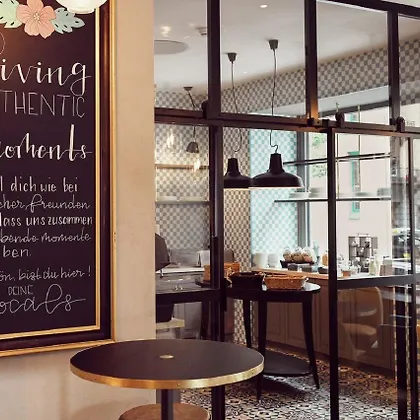 iving
THENTIC
oments
l dich wie bei
cher, freunden
lass uns zusammen
bende momente
ben.
ön, bist du hier!
DEINE
ocals